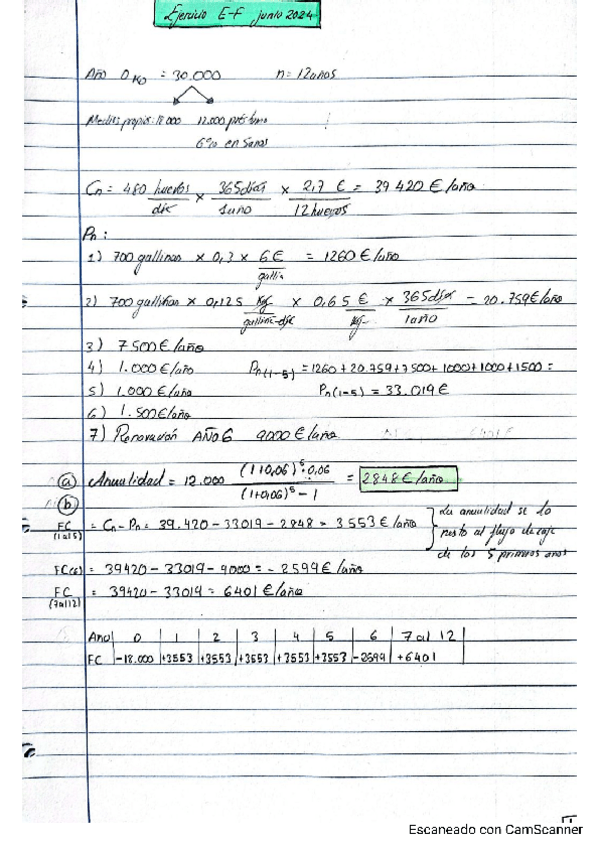 Ejercicio E-F junio 2024
Año 0 Ko = 30.000 n = 12 años
Medios propios: 18.000 12.000 préstamo
6% en 5 años
Cn = 480 huevos/día × 365 días/1 año × 2,7 €/12 huevos = 39 420 €/año
Pn:
1) 700 gallinas × 0,3 × 6 €/gallina = 1260 €/año
2) 700 gallinas × 0,125 kg/gallina-día × 0,65 €/kg × 365 día/1 año = 20.759 €/año
3) 7500 €/año
4) 1.000 €/año Pn(1-5) = 1260 + 20.759 + 7500 + 1000 + 1000 + 1500 =
5) 1.000 €/año Pn(1-5) = 33.019 €
6) 1.500 €/año
7) Renovación AÑO 6 9000 €/año
a) Anualidad = 12.000 (1+0,06)⁵·0,06/(1+0,06)⁵ - 1 = 2848 €/año
b)
FC (1 al 5) = Cn - Pn = 39.420 - 33019 - 2848 = 3553 €/año } La anualidad se lo resto al flujo de caja de los 5 primeros años
FC(6) = 39420 - 33019 - 9000 = -2599 €/año
FC (7 al 12) = 39420 - 33019 = 6401 €/año
Año 0 1 2 3 4 5 6 7 al 12
FC -18.000 +3553 +3553 +3553 +3553 +3553 -2599 +6401
Escaneado con CamScanner